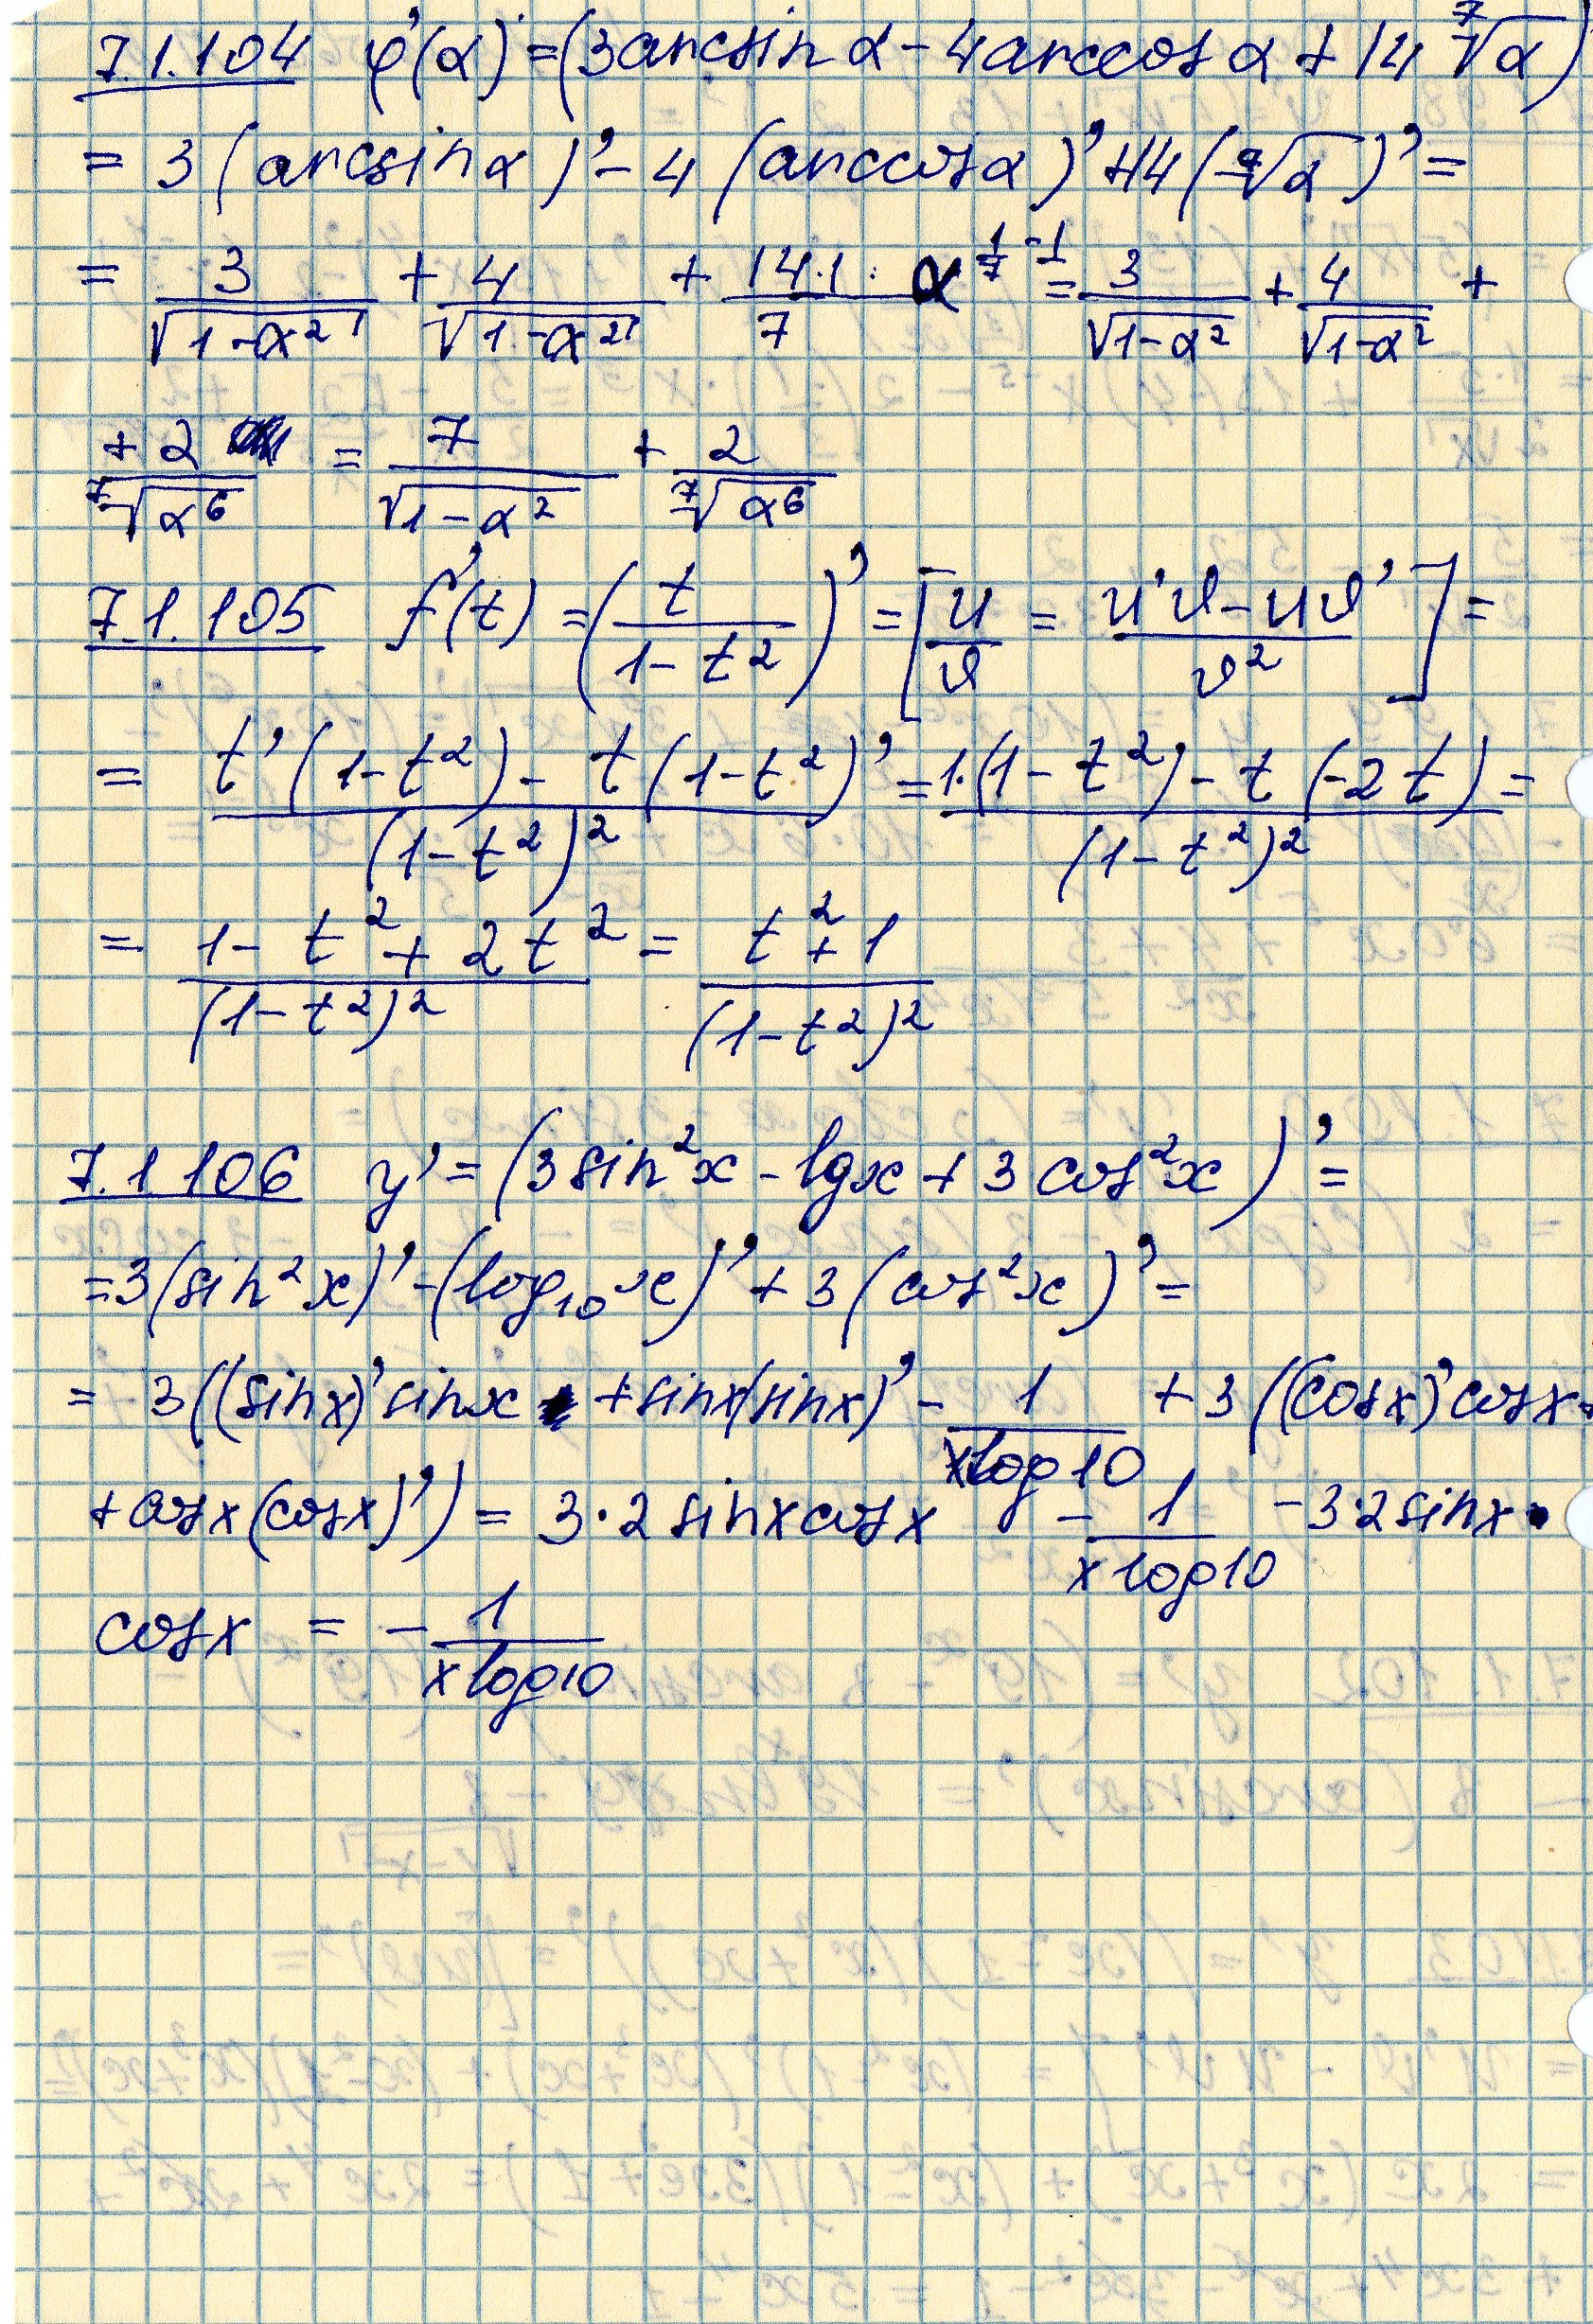 7.1.104 φ'(α) = (3arcsin α - 4arccos α + 14 ⁷√α)
= 3(arcsin α)' - 4(arccos α)' + 14(⁷√α)' =
= 3/√(1-α²) + 4/√(1-α²) + 14·1/7 · α^(1/7 - 1) = 3/√(1-α²) + 4/√(1-α²) +
+ 2/⁷√α⁶ = 7/√(1-α²) + 2/⁷√α⁶
7.1.105 f'(t) = (t/(1-t²))' = [u/v = (u'v - uv')/v²] =
= (t'(1-t²) - t(1-t²)')/(1-t²)² = (1·(1-t²) - t(-2t))/(1-t²)² =
= (1-t²+2t²)/(1-t²)² = (t²+1)/(1-t²)²
7.1.106 y' = (3sin²x - lgx + 3cos²x)' =
= 3(sin²x)' - (log₁₀x)' + 3(cos²x)' =
= 3((sinx)'sinx + sinx(sinx)' - 1/(x log10) + 3((cosx)'cosx+
+ cosx(cosx)') = 3·2sinxcosx - 1/(x log10) - 3·2sinx·
cosx = - 1/(x log10)